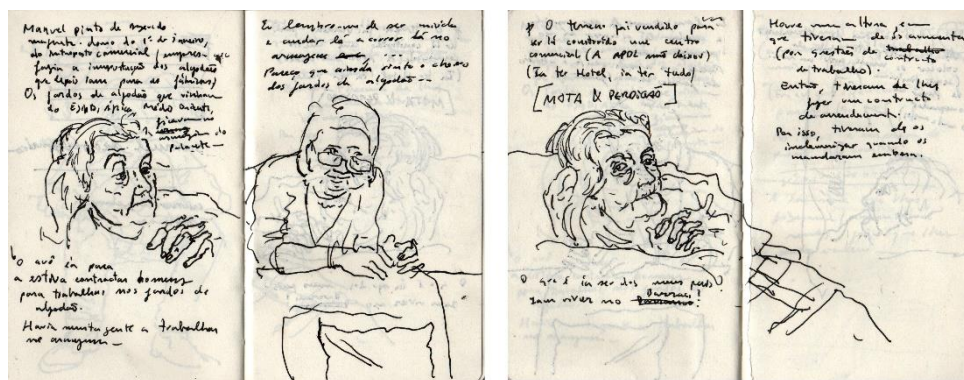 Manuel Pinto de Azevedo
dono do 1º de Janeiro,
do entreposto comercial /
fazia a importação dos algodões
que depois iam para as fábricas)
Os fardos de algodão que vinham
do Egipto, África, Médio Oriente,
ficavam no
armazém do
O avô ia para
a estiva contractar homens
para trabalhar nos fardos de
algodão.
Havia muita gente a trabalhar
no armazém —
Eu lembro-me de ser miúda
e andar lá a correr lá no
armazém
Parece que ainda sinto o cheiro
dos fardos de algodão —
O terreno foi vendido para
ser lá construído um centro
comercial (A APDL não deixou)
(Ia ter Hotel, ia ter tudo)
[MOTA & PERDIGÃO]
O que é ia ser dos meus pais?
Iam viver no Barreiro!
Houve uma altura em
que tiveram de os aumentar
(por questões de contracto
de trabalho).
Então, tiveram de lhes
fazer um contracto
de arrendamento.
Por isso, tiveram de os
indemnizar quando os
mandaram embora.